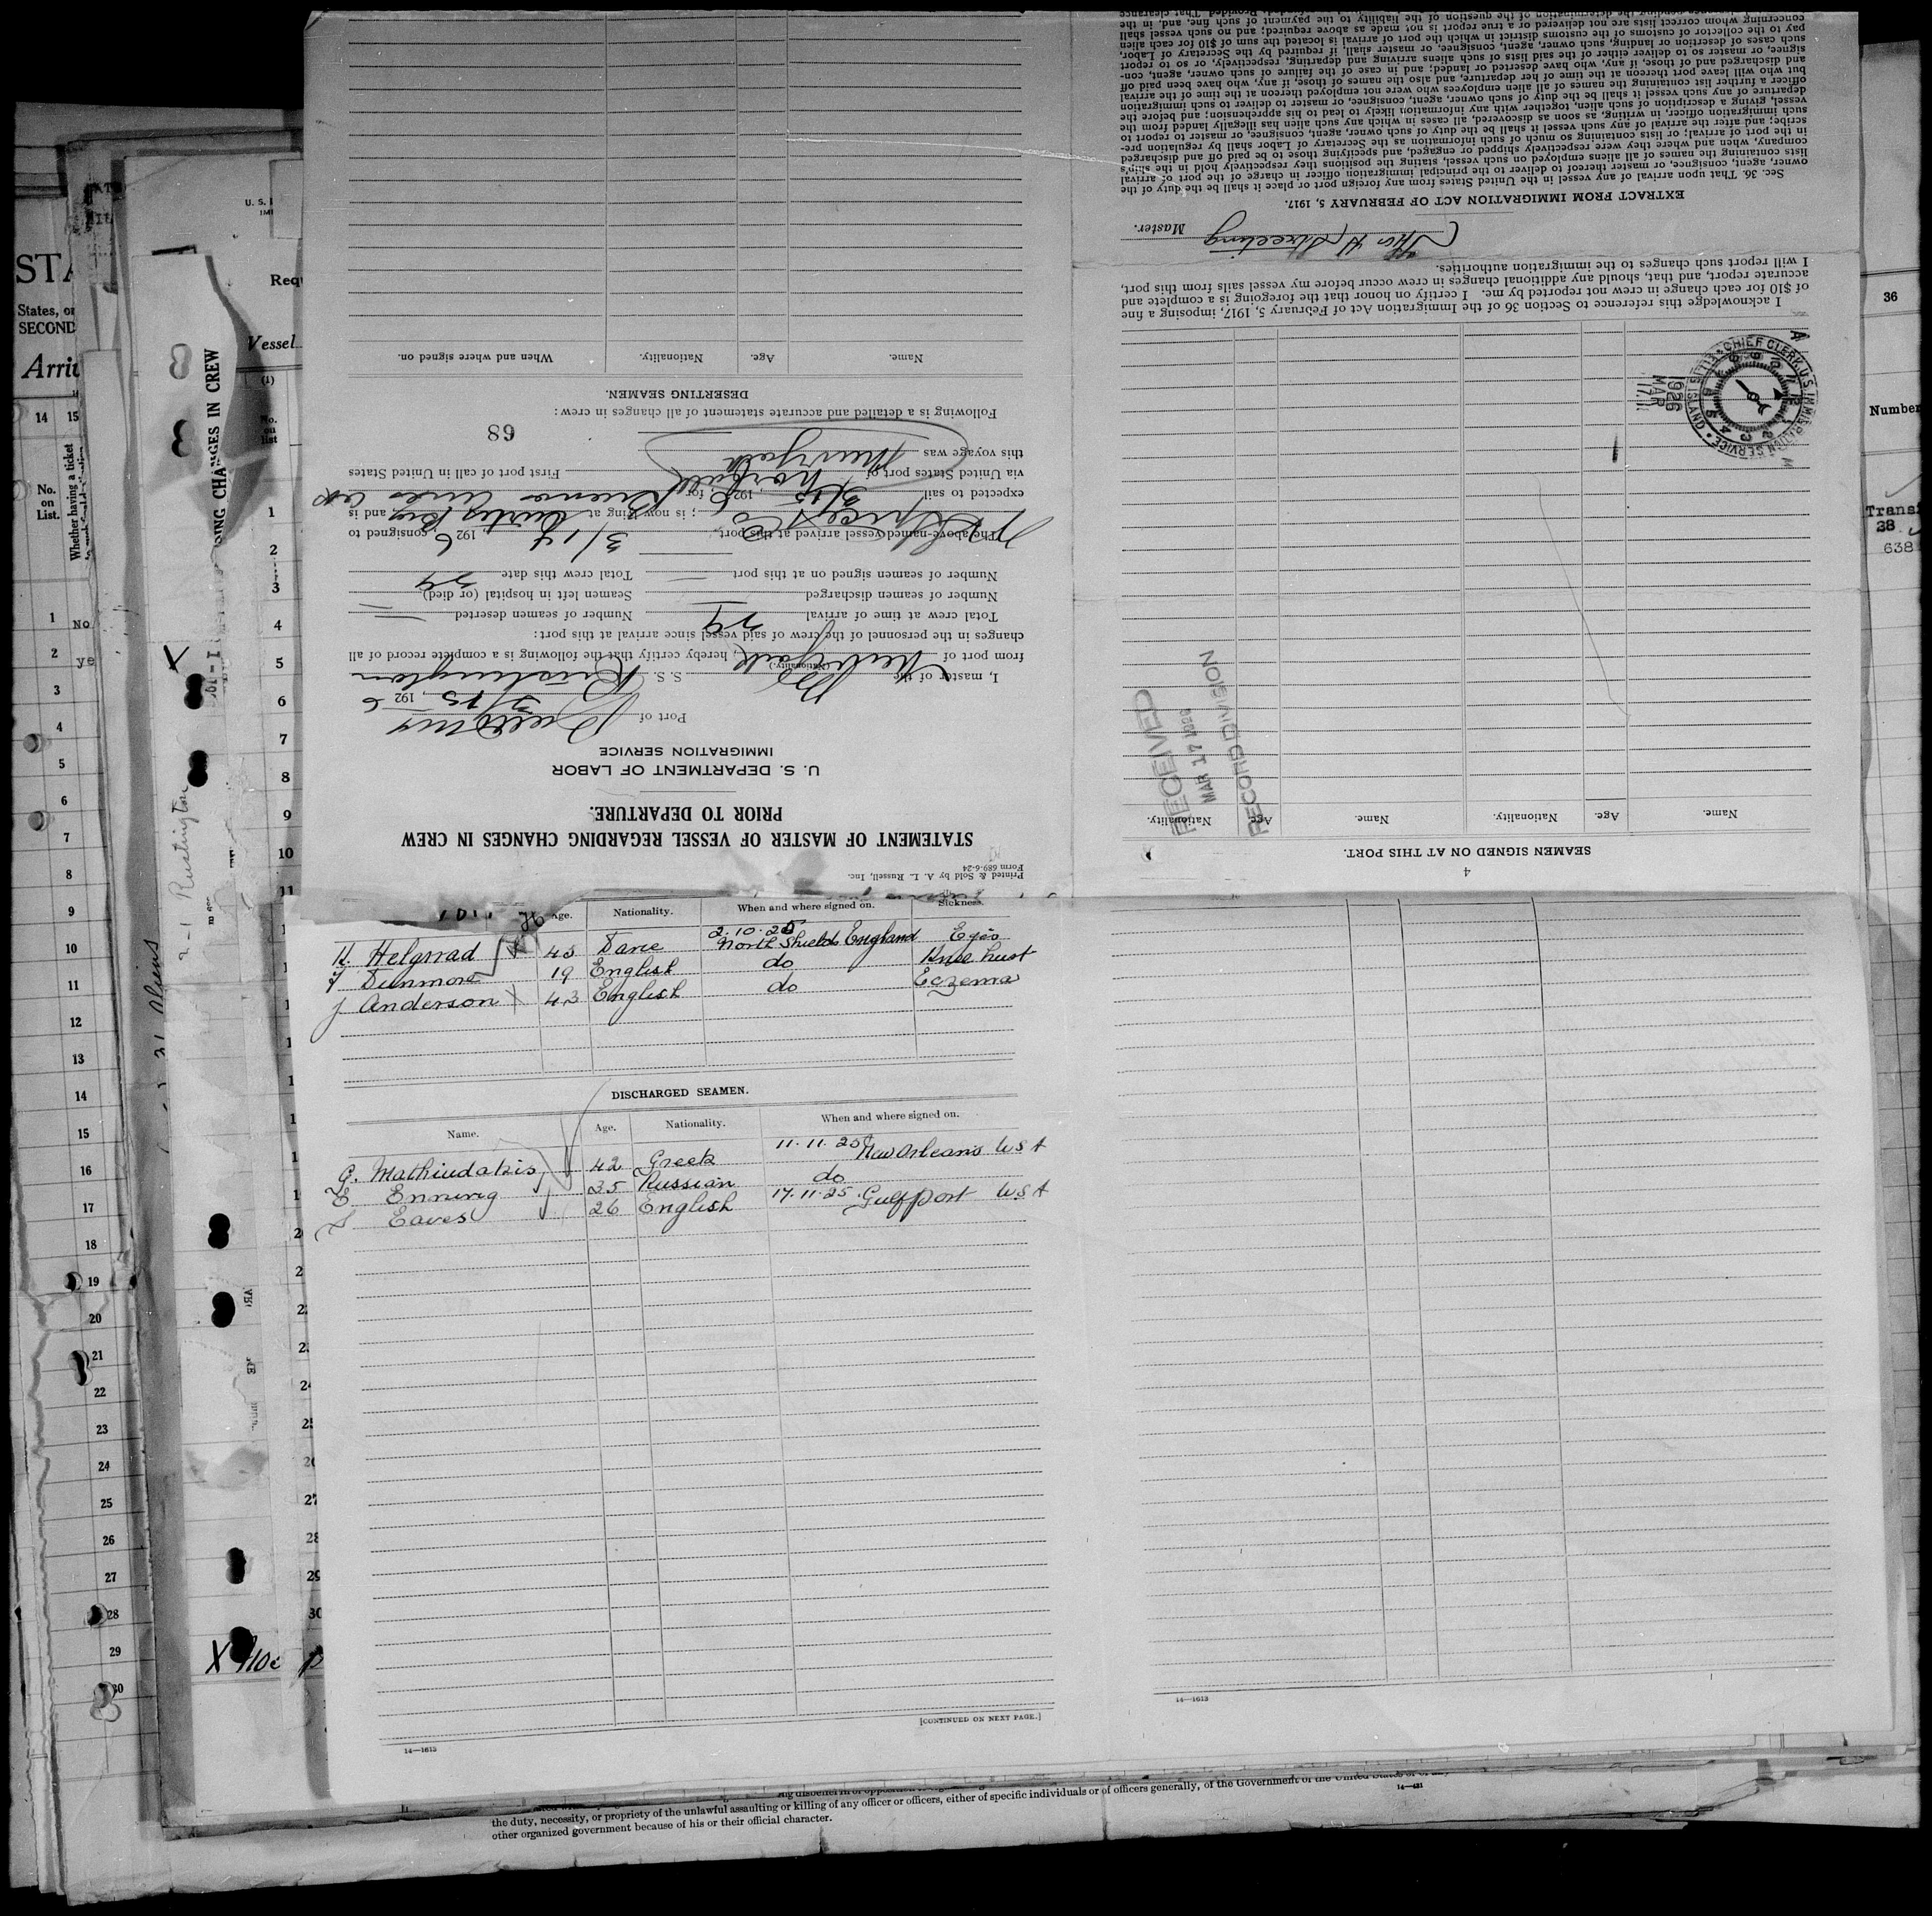 Printed & Sold by A. L. Russell, Inc.
Form 689-6-24
STATEMENT OF MASTER OF VESSEL REGARDING CHANGES IN CREW
PRIOR TO DEPARTURE.
U. S. DEPARTMENT OF LABOR
IMMIGRATION SERVICE
Port of
3/15, 1926
I, master of the Br S. S. Rustington
(Nationality.)
from port of New York, hereby certify that the following is a complete record of all
changes in the personnel of the crew of said vessel since arrival at this port:
Total crew at time of arrival 29 Number of seamen deserted —
Number of seamen discharged — Seamen left in hospital (or died)
Number of seamen signed on at this port — Total crew this date 29
The above-named vessel arrived at this port 3/14 1926, consigned to
; is now lying at Curtis Bay and is
expected to sail 3/15, 1926, for Buenos Aires
via United States port of Norfolk First port of call in United States
this voyage was New York
68
Following is a detailed and accurate statement of all changes in crew:
DESERTING SEAMEN.
Name. Age. Nationality. When and where signed on.
4
SEAMEN SIGNED ON AT THIS PORT.
Name. Age. Nationality. Name. Age. Nationality.
RECEIVED
MAR 17 1926
RECORD DIVISION
CHIEF CLERK, U.S. IMMIGRATION SERVICE
ELLIS ISLAND
1926
MAR
17
I acknowledge this reference to Section 36 of the Immigration Act of February 5, 1917, imposing a fine
of $10 for each change in crew not reported by me. I certify on honor that the foregoing is a complete and
accurate report, and that, should any additional changes in crew occur before my vessel sails from this port,
I will report such changes to the immigration authorities.
Master.
EXTRACT FROM IMMIGRATION ACT OF FEBRUARY 5, 1917.
Sec. 36. That upon arrival of any vessel in the United States from any foreign port or place it shall be the duty of the
owner, agent, consignee, or master thereof to deliver to the principal immigration officer in charge of the port of arrival
lists containing the names of all aliens employed on such vessel, stating the positions they respectively hold in the ship's
company, when and where they were respectively shipped or engaged, and specifying those to be paid off and discharged
in the port of arrival; or lists containing so much of such information as the Secretary of Labor shall by regulation pre-
scribe; and after the arrival of any such vessel it shall be the duty of such owner, agent, consignee, or master to report to
such immigration officer, in writing, as soon as discovered, all cases in which any such alien has illegally landed from the
vessel, giving a description of such alien, together with any information likely to lead to his apprehension; and before the
departure of any such vessel it shall be the duty of such owner, agent, consignee, or master to deliver to such immigration
officer a further list containing the names of all alien employees who were not employed thereon at the time of the arrival
but who will leave port thereon at the time of her departure, and also the names of those, if any, who have been paid off
and discharged and of those, if any, who have deserted or landed; and in case of the failure of such owner, agent, con-
signee, or master so to deliver either of the said lists of such aliens arriving and departing, respectively, or so to report
such cases of desertion or landing, such owner, agent, consignee, or master shall, if required by the Secretary of Labor,
pay to the collector of customs of the customs district in which the port of arrival is located the sum of $10 for each alien
concerning whom correct lists are not delivered or a true report is not made as above required; and no such vessel shall
Age. Nationality. When and where signed on. Sickness.
H. Helgnad 43 Dane 2.10.25 North Shields England Eyes
Dunmore 19 English do Knee hurt
J Anderson X 43 English do Eczema
DISCHARGED SEAMEN.
Name. Age. Nationality. When and where signed on.
G. Mathiudakis 42 Greek 11.11.25 New Orleans USA
E. Ennwig 35 Russian do
S Eaves 26 English 17.11.25 Gulfport USA
[CONTINUED ON NEXT PAGE.]
14—1613
14—1613
the duty, necessity, or propriety of the unlawful assaulting or killing of any officer or officers, either of specific individuals or of officers generally, of the Government of the United States or of any
other organized government because of his or their official character.
States, or
SECOND
No.
on
List.
Whether having a ticket
Vessel
No.
on
list
2-1 Rustington
21 Aliens
36
Number
638